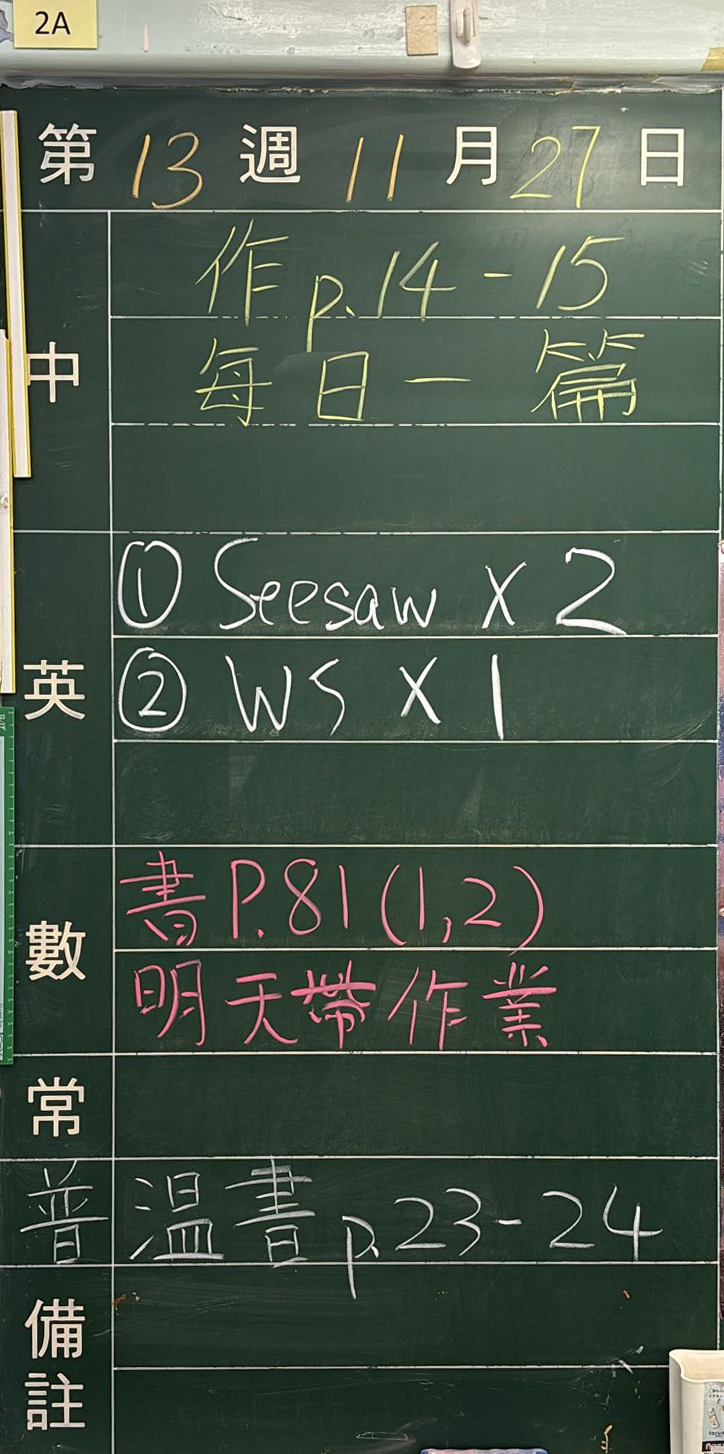 2A
第 13 週 11 月 27 日
中
作 p.14-15
每日一篇
英
① Seesaw X 2
② WS X 1
數
書 P.81 (1,2)
明天帶作業
常
普
温書 p.23-24
備註